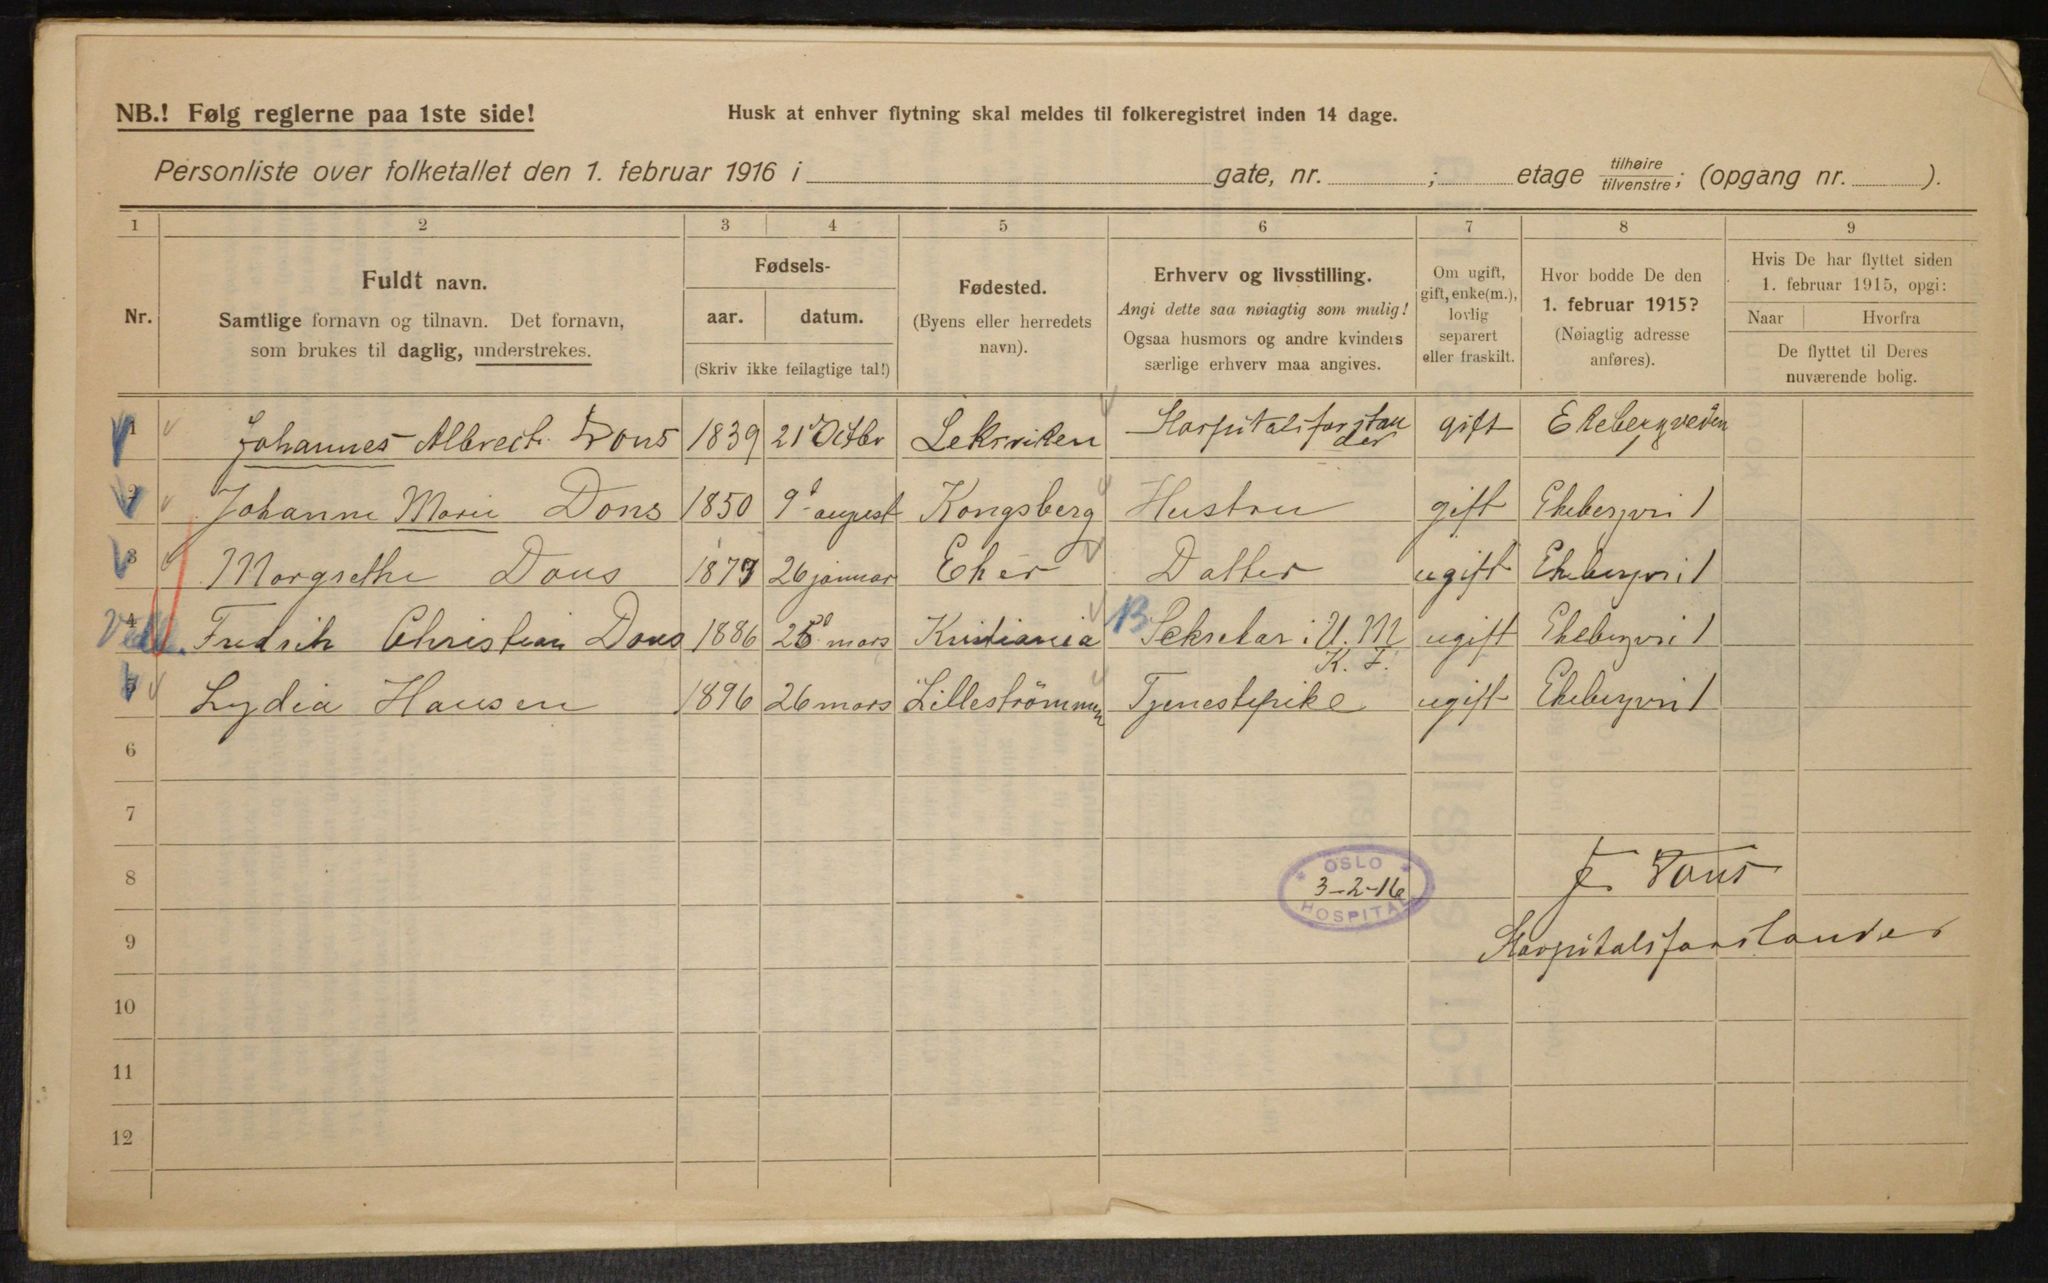 NB.! Følg reglerne paa 1ste side!
Husk at enhver flytning skal meldes til folkeregistret inden 14 dage.
Personliste over folketallet den 1. februar 1916 i gate, nr. ; etage tilhøire tilvenstre; (opgang nr. ).
1 2 3 4 5 6 7 8 9
Nr.
Fuldt navn.
Samtlige fornavn og tilnavn. Det fornavn,
som brukes til daglig, understrekes.
Fødsels-
aar. datum.
(Skriv ikke feilagtige tal!)
Fødested.
(Byens eller herredets
navn).
Erhverv og livsstilling.
Angi dette saa nøiagtig som mulig!
Ogsaa husmors og andre kvinders
særlige erhverv maa angives.
Om ugift,
gift, enke(m.),
lovlig
separert
eller fraskilt.
Hvor bodde De den
1. februar 1915?
(Nøiagtig adresse
anføres).
Hvis De har flyttet siden
1. februar 1915, opgi:
Naar Hvorfra
De flyttet til Deres
nuværende bolig.
1 Johannes Albrecht Dons 1839 21 Octbr Leksviken Hospitalsforstander gift Ekebergveien 1
2 Johanne Marie Dons 1850 9 august Kongsberg Hustru gift Ekebergvei 1
3 Margrethe Dons 1879 26 januar Eker Datter ugift Ekebergvei 1
4 Fredrik Christian Dons 1886 mars Kristiania Sekretær i U. M. K. F. ugift Ekebergvei 1
5 Lydia Hansen 1896 26 mars Lilleströmmen Tjenestepike ugift Ekebergvei 1
6
7
8
OSLO
3-2-16
HOSPITAL
J. Dons
9
Hospitalsforstander
10
11
12